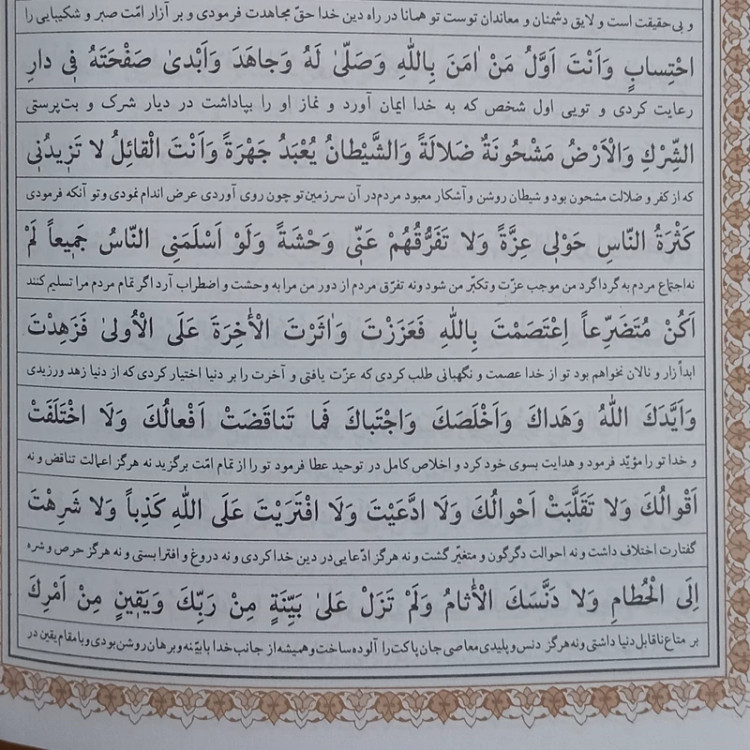 و بی‌حقیقت است و لایق دشمنان و معاندان توست تو همانا در راه دین خدا حقّ مجاهدت فرمودی و بر آزار امّت صبر و شکیبایی را
احْتِسابٍ وَاَنْتَ اَوَّلُ مَنْ اٰمَنَ بِاللّٰهِ وَصَلّىٰ لَهُ وَجاهَدَ وَاَبْدىٰ صَفْحَتَهُ فِى دارِ
رعایت کردی و تویی اول شخص که به خدا ایمان آورد و نماز او را بپاداشت در دیار شرک و بت‌پرستی
الشِّرْكِ وَالْاَرْضُ مَشْحُونَةٌ ضَلالَةً وَالشَّيْطانُ يُعْبَدُ جَهْرَةً وَاَنْتَ الْقائِلُ لا تَزِيدُنِى
که از کفر و ضلالت مشحون بود و شیطان روشن و آشکار معبود مردم در آن سرزمین تو چون روی آوردی عرض اندام نمودی و تو آنکه فرمودی
كَثْرَةُ النّاسِ حَوْلِى عِزَّةً وَلا تَفَرُّقُهُمْ عَنّى وَحْشَةً وَلَوْ اَسْلَمَنِى النّاسُ جَمِيعاً لَمْ
نه اجتماع مردم به گرداگرد من موجب عزّت و تکبّر من شود و نه تفرّق مردم از دور من مرا به وحشت و اضطراب آرد اگر تمام مردم مرا تسلیم کنند
اَكُنْ مُتَضَرِّعاً اِعْتَصَمْتَ بِاللّٰهِ فَعَزَزْتَ وَاٰثَرْتَ الْاٰخِرَةَ عَلَى الْاُولىٰ فَزَهِدْتَ
ابداً زار و نالان نخواهم بود تو از خدا عصمت و نگهبانی طلب کردی که عزّت یافتی و آخرت را بر دنیا اختیار کردی که از دنیا زهد ورزیدی
وَاَيَّدَكَ اللّٰهُ وَهَداكَ وَاَخْلَصَكَ وَاجْتَباكَ فَما تَناقَضَتْ اَفْعالُكَ وَلَا اخْتَلَفَتْ
و خدا تو را مؤیّد فرمود و هدایت بسوی خود کرد و اخلاص کامل در توحید عطا فرمود تو را از تمام امّت برگزید نه هرگز اعمالت تناقض و نه
اَقْوالُكَ وَلا تَقَلَّبَتْ اَحْوالُكَ وَلَا ادَّعَيْتَ وَلَا افْتَرَيْتَ عَلَى اللّٰهِ كَذِباً وَلا شَرِهْتَ
گفتارت اختلاف داشت و نه احوالت دگرگون و متغیّر گشت و نه هرگز ادّعایی در دین خدا کردی و نه دروغ و افترا بستی و نه هرگز حرص و شره
اِلَى الْحُطامِ وَلا دَنَّسَكَ الْاٰثامُ وَلَمْ تَزَلْ عَلىٰ بَيِّنَةٍ مِنْ رَبِّكَ وَيَقينٍ مِنْ اَمْرِكَ
بر متاع ناقابل دنیا داشتی و نه هرگز دنس و پلیدی معاصی جان پاکت را آلوده ساخت و همیشه از جانب خدا با بیّنه و برهان روشن بودی و با مقام یقین در